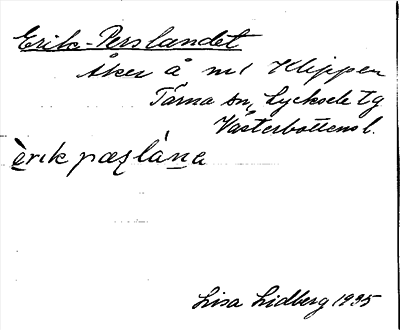 Erik-Perslandet
Åker å nr 1 Klippen
Tärna sn, Lycksele tg
Västerbottens l.
èrik pæʂlàna
Lisa Lidberg 1935